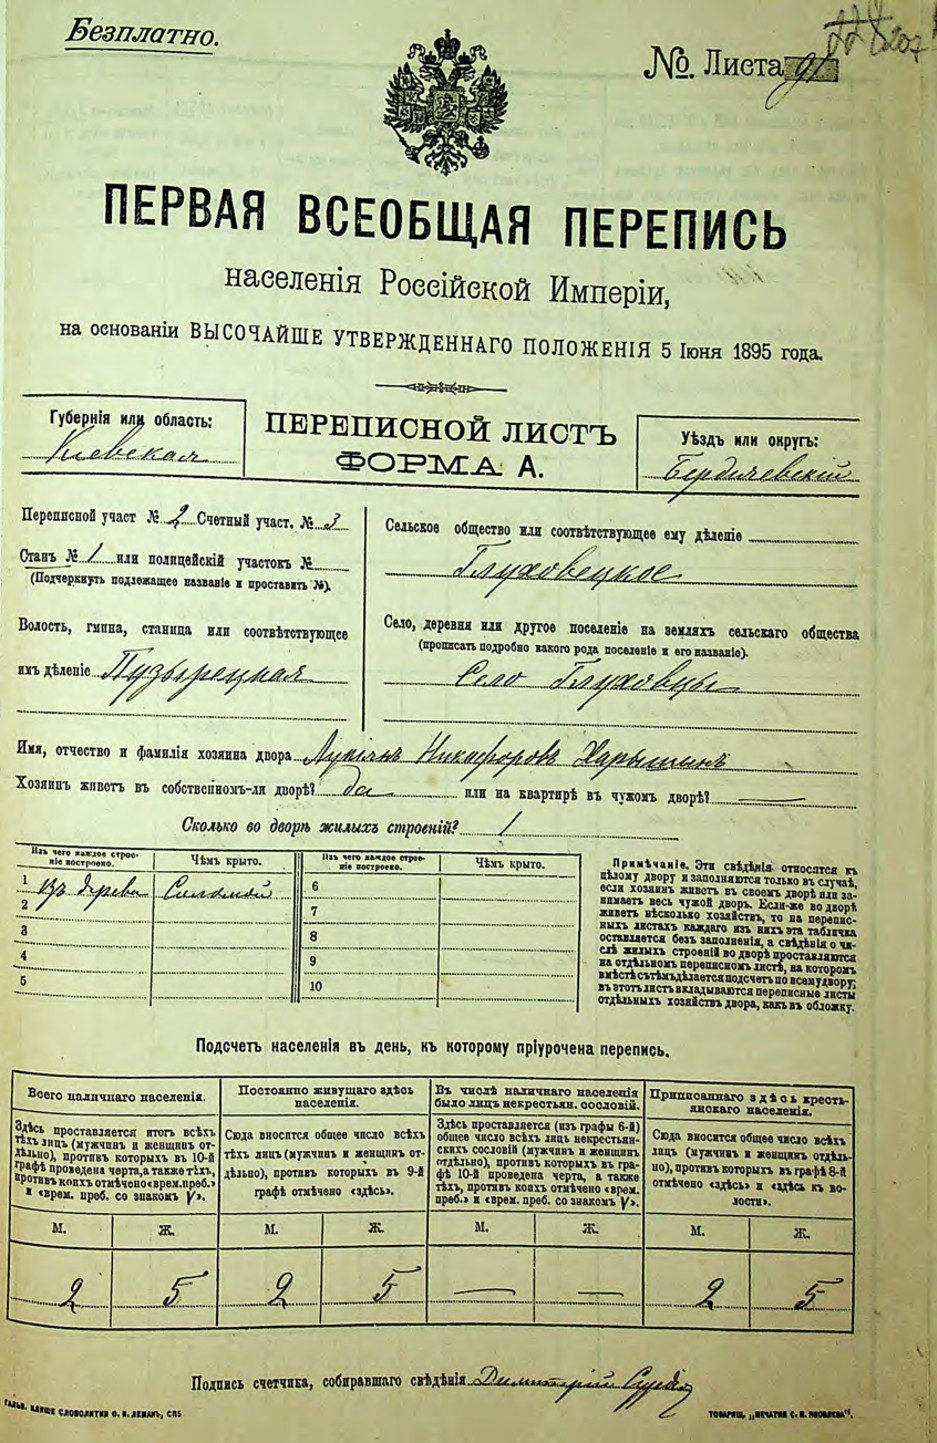 Безплатно.
№. Листа 91
207
ПЕРВАЯ ВСЕОБЩАЯ ПЕРЕПИСЬ
населенія Россійской Имперіи,
на основаніи ВЫСОЧАЙШЕ УТВЕРЖДЕННАГО ПОЛОЖЕНІЯ 5 Іюня 1895 года.
Губернія или область:
Кіевская
ПЕРЕПИСНОЙ ЛИСТЪ
ФОРМА А.
Уѣздъ или округъ:
Бердичевскій
Переписной участ № 2 Счетный участ. № 3
Станъ № 1 или полицейскій участокъ №
(Подчеркнуть подлежащее названіе и проставить №).
Волость, гмина, станица или соотвѣтствующее
имъ дѣленіе Пузырецкая
Сельское общество или соотвѣтствующее ему дѣленіе
Глуховецкое
Село, деревня или другое поселеніе на земляхъ сельскаго общества
(прописать подробно какого рода поселеніе и его названіе).
Село Глуховцы
Имя, отчество и фамилія хозяина двора Лукіянъ Никифоровъ Харышинъ
Хозяинъ живетъ въ собственномъ-ли дворѣ? да или на квартирѣ въ чужомъ дворѣ? —
Сколько во дворѣ жилыхъ строеній? 1
Изъ чего каждое строе-
ніе построено.
Чѣмъ крыто.
Изъ чего каждое строе-
ніе построено.
Чѣмъ крыто.
1 изъ дерева Соломой
2
3
4
5
6
7
8
9
10
Примѣчаніе. Эти свѣдѣнія относятся къ
цѣлому двору и заполняются только въ случаѣ,
если хозяинъ живетъ въ своемъ дворѣ или за-
нимаетъ весь чужой дворъ. Если-же во дворѣ
живетъ нѣсколько хозяйствъ, то на перепис-
ныхъ листахъ каждаго изъ нихъ эта табличка
оставляется безъ заполненія, а свѣдѣнія о чи-
слѣ жилыхъ строеній во дворѣ проставляются
на отдѣльномъ переписномъ листѣ, на которомъ
вмѣстѣ съ тѣмъ дѣлается подсчетъ по всему двору;
въ этотъ листъ вкладываются переписные листы
отдѣльныхъ хозяйствъ двора, какъ въ обложку.
Подсчетъ населенія въ день, къ которому пріурочена перепись.
Всего наличнаго населенія.
Здѣсь проставляется итогъ всѣхъ
тѣхъ лицъ (мужчинъ и женщинъ от-
дѣльно), противъ которыхъ въ 10-й
графѣ проведена черта, а также тѣхъ,
противъ коихъ отмѣчено «врем. преб.»
и «врем. преб. со знакомъ V».
Постоянно живущаго здѣсь
населенія.
Сюда вносится общее число всѣхъ
тѣхъ лицъ (мужчинъ и женщинъ от-
дѣльно), противъ которыхъ въ 9-й
графѣ отмѣчено «здѣсь».
Въ числѣ наличнаго населенія
было лицъ некрестьян. сословій.
Здѣсь проставляется (изъ графы 6-й)
общее число всѣхъ лицъ некрестьян-
скихъ сословій (мужчинъ и женщинъ
отдѣльно), противъ которыхъ въ гра-
фѣ 10-й проведена черта, а также
тѣхъ, противъ коихъ отмѣчено «врем.
преб.» и «врем. преб. со знакомъ V».
Приписаннаго здѣсь кресть-
янскаго населенія.
Сюда вносится общее число всѣхъ
лицъ (мужчинъ и женщинъ отдѣль-
но), противъ которыхъ въ графѣ 8-й
отмѣчено «здѣсь» и «здѣсь къ во-
лости».
М. Ж. М. Ж. М. Ж. М. Ж.
2 5 2 5 — — 2 5
Подпись счетчика, собиравшаго свѣдѣнія Димитрій
ГАЛЬВ. КЛИШЕ СЛОВОЛИТНИ О. И. ЛЕМАНЪ, СПБ
ТОВАРИЩ. „ПЕЧАТНЯ С. П. ЯКОВЛЕВА".